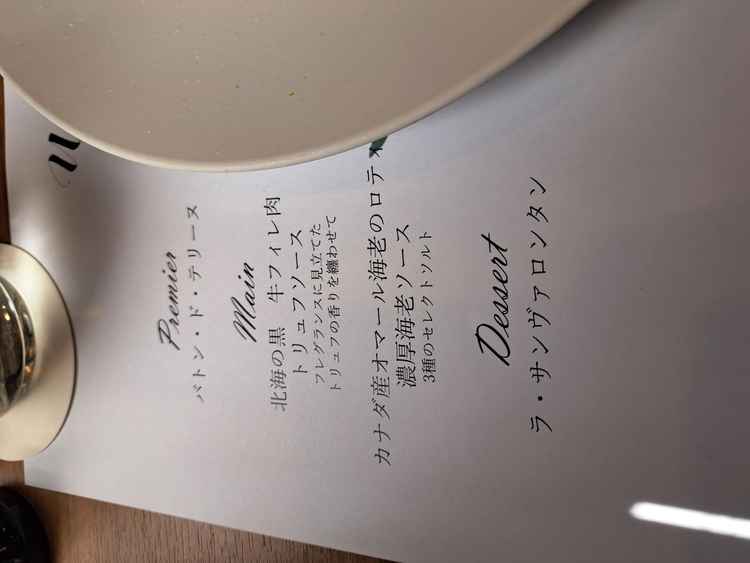 Premier
バトン・ド・テリーヌ
Main
北海の黒　牛フィレ肉
トリュフソース
フレグランスに見立てた
トリュフの香りを纏わせて
カナダ産オマール海老のロティ
濃厚海老ソース
3種のセレクトソルト
Dessert
ラ・サンヴァロンタン